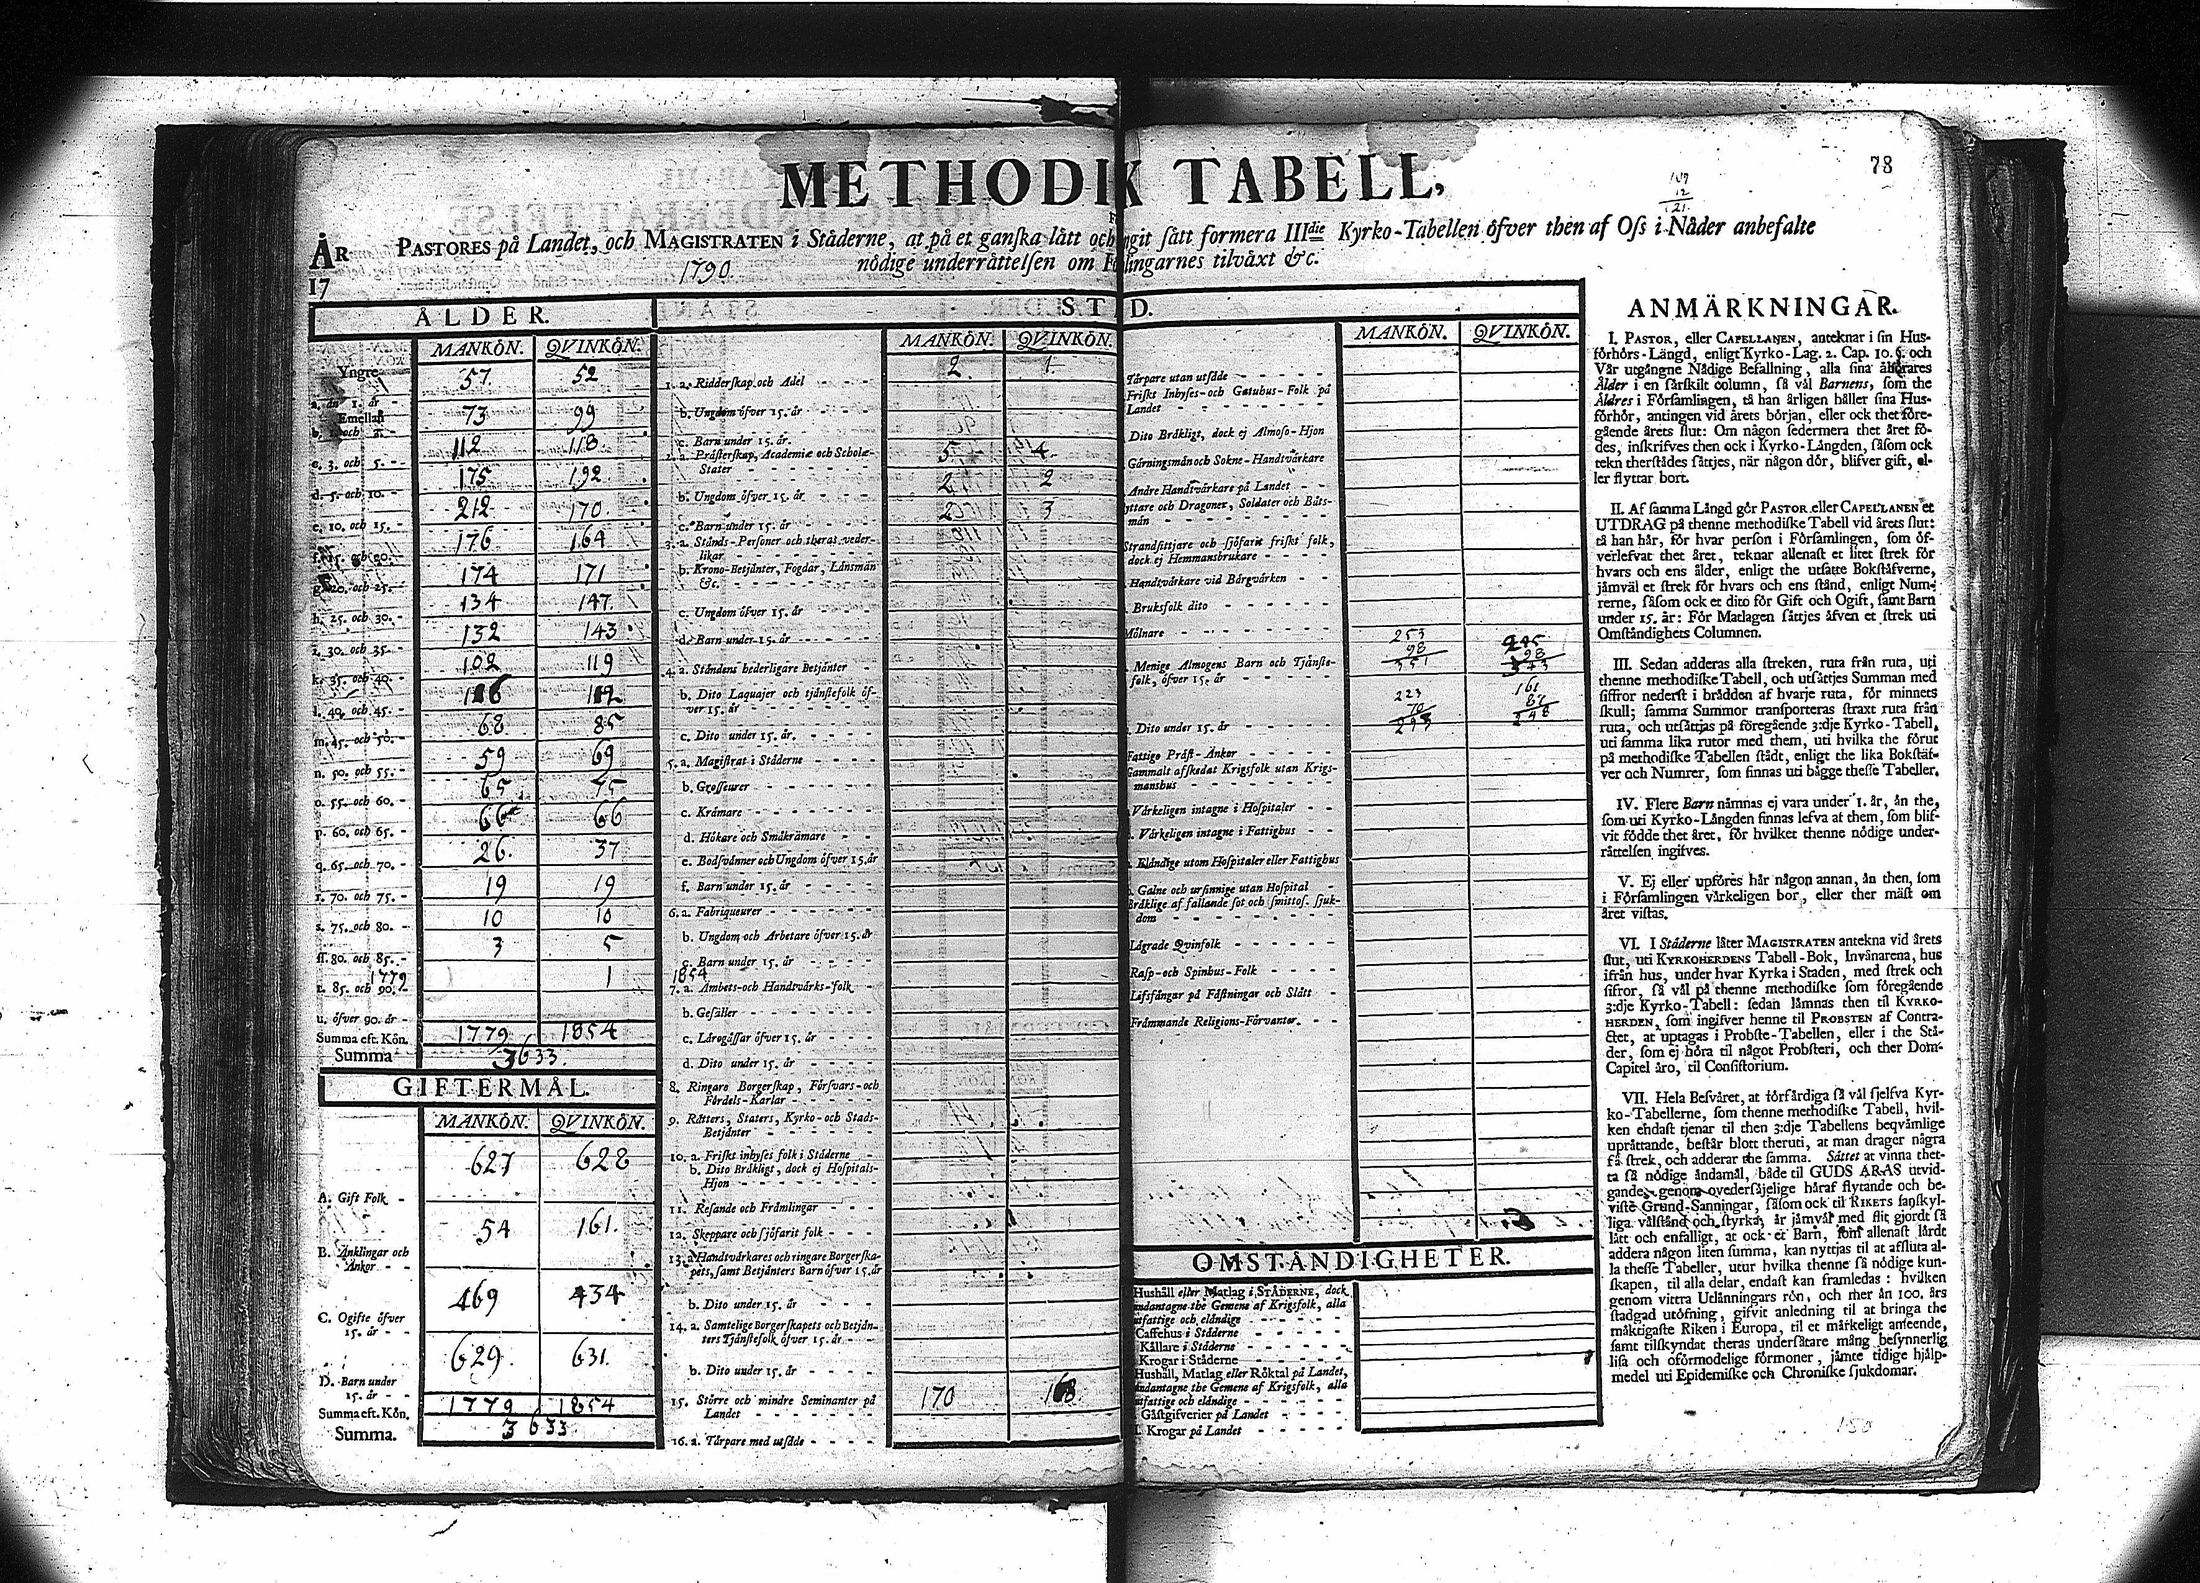 METHODIK TABELL,
78
109
12
121.
ÅR
17
PASTORES på Landet, och MAGISTRATEN i Städerne, at på et ganska lätt och
git sätt formera IIIdie Kyrko-Tabellen öfver then af Oss i Nåder anbefalte
1790.
nödige underrättelsen om
lingarnes tilväxt &c.
ÅLDER.
MANKÖN. QVINKÖN.
Yngre 57 52
a. än 1. år -
Emellan 73 99
b. och 3. -
112 118
c. 3. och 5. -
175 192
d. 5. och 10. -
212 170
e. 10. och 15. -
176 164
f. 15. och 20.
174 171
g. 20. och 25.
134 147
h. 25. och 30. -
132 143
i. 30. och 35. -
102 119
k. 35. och 40. -
l. 40. och 45. -
68 85
m. 45. och 50. -
59 69
n. 50. och 55. -
65
o. 55. och 60. -
66 66
p. 60. och 65. -
26. 37
q. 65. och 70. -
19 19
r. 70. och 75. -
10 10
s. 75. och 80. -
3 5
ff. 80. och 85. -
1779 1 1854
t. 85. och 90. -
u. öfver 90. år -
Summa eft. Kön. 1779 1854
Summa 3633.
GIFTERMÅL.
MANKÖN. QVINKÖN.
627 628
A. Gift Folk -
54 161.
B. Änklingar och
Änkor - -
469 434
C. Ogifte öfver
15. år - -
629 631.
D. Barn under
15. år - -
Summa eft. Kön. 1779 1854
Summa. 3633.
ST D.
MANKÖN. QVINKÖN.
2 1
1. a. Ridderskap och Adel
b. Ungdom öfver 15. år
c. Barn under 15. år.
2. a. Prästerskap, Academiæ och Scholæ-
Stater 5 4
b. Ungdom öfver 15. år 2 2
c. Barn under 15. år 2 3
3. a. Stånds-Personer och theras veder-
likar
b. Krono-Betjänter, Fogdar, Länsmän
&c.
c. Ungdom öfver 15. år
d. Barn under 15. år
4. a. Ståndens hederligare Betjänter
b. Dito Laquajer och tjänstefolk öf-
ver 15. år
c. Dito under 15. år.
5. a. Magistrat i Städerne
b. Grosseurer
c. Krämare
d. Hökare och Småkrämare
e. Bodsvänner och Ungdom öfver 15. år
f. Barn under 15. år
6. a. Fabriqueurer
b. Ungdom och Arbetare öfver 15. år
c. Barn under 15. år
7. a. Ämbets- och Handtvärks-folk
b. Gesäller
c. Lärogässar öfver 15. år
d. Dito under 15. år
8. Ringare Borgerskap, Försvars- och
Fördels-Karlar
9. Rätters, Staters, Kyrko- och Stads-
Betjänter
10. a. Friskt inhyses folk i Städerne
b. Dito Bräkligt, dock ej Hospitals-
Hjon
11. Resande och Främlingar
12. Skeppare och sjöfarit folk
13. a. Handtvärkares och ringare Borgerska-
pets, samt Betjänters Barn öfver 15. år
b. Dito under 15. år
14. a. Samtelige Borgerskapets och Betjän-
ters Tjänstefolk öfver 15. år
b. Dito under 15. år
15. Större och mindre Hemmansmän på
Landet 170
16. a. Tärpare med utsäde
MANKÖN. QVINKÖN.
Tärpare utan utsäde
Friskt Inhyses- och Gatuhus-Folk på
Landet
Dito Bräkligt, dock ej Almoso-Hjon
Gärningsmän och Sokne-Handtvärkare
Andre Handtvärkare på Landet
yttare och Dragoner, Soldater och Båts-
män
Strandsittjare och sjöfarit friskt folk,
dock ej Hemmansbrukare
Handtvärkare vid Bärgvärken
Bruksfolk dito
Mölnare
253
98 98
351 343
Menige Almogens Barn och Tjänste-
folk, öfver 15. år
223 161
70 87
293 248
Dito under 15. år
Fattige Präst-Änkor
Gammalt afskedat Krigsfolk utan Krigs-
manshus
Värkeligen intagne i Hospitaler
Värkeligen intagne i Fattighus
Eländige utom Hospitaler eller Fattighus
Galne och ursinnige utan Hospital
Bräklige af fallande sot och smittos. sjuk-
dom
Lägrade Qvinfolk
Rasp- och Spinhus-Folk
Lifsfångar på Fästningar och Slått
Främmande Religions-Förvanter.
OMSTÄNDIGHETER.
Hushåll eller Matlag i STÄDERNE, dock
undantagne the Gemene af Krigsfolk, alla
utfattige och eländige
Caffehus i Städerne
Källare i Städerne
Krogar i Städerne
Hushåll, Matlag eller Röktal på Landet,
undantagne the Gemene af Krigsfolk, alla
utfattige och eländige
Gästgifverier på Landet
Krogar på Landet
ANMÄRKNINGAR.
I. PASTOR, eller CAPELLANEN, anteknar i sin Hus-
förhörs-Längd, enligt Kyrko-Lag. 2. Cap. 10. §. och
Vår utgångne Nådige Befallning, alla sina åhörares
Ålder i en särskilt column, så väl Barnens, som the
Äldres i Församlingen, tå han årligen håller sina Hus-
förhör, antingen vid årets början, eller ock thet före-
gående årets slut: Om någon sedermera thet året fö-
des, inskrifves then ock i Kyrko-Längden, såsom ock
tekn therstädes sättjes, när någon dör, blifver gift, el-
ler flyttar bort.
II. Af samma Längd gör PASTOR eller CAPELLANEN et
UTDRAG på thenne methodiske Tabell vid årets slut:
tå han här, för hvar person i Församlingen, som öf-
verlefvat thet året, teknar allenast et litet strek för
hvars och ens ålder, enligt the utsatte Bokstäfverne,
jämväl et strek för hvars och ens stånd, enligt Num-
rerne, såsom ock et dito för Gift och Ogift, samt Barn
under 15. år: För Matlagen sättjes äfven et strek uti
Omständighets Columnen.
III. Sedan adderas alla streken, ruta från ruta, uti
thenne methodiske Tabell, och utsättjes Summan med
siffror nederst i brädden af hvarje ruta, för minnets
skull; samma Summor transporteras straxt ruta från
ruta, och utsättjas på föregående 3:dje Kyrko-Tabell,
uti samma lika rutor med them, uti hvilka the förut
på methodiske Tabellen städt, enligt the lika Bokstäf-
ver och Numrer, som finnas uti bägge thesse Tabeller.
IV. Flere Barn nämnas ej vara under 1. år, än the,
som uti Kyrko-Längden finnas lefva at them, som blif-
vit födde thet året, för hvilket thenne nödige under-
rättelsen ingifves.
V. Ej eller upföres här någon annan, än then, som
i Församlingen värkeligen bor, eller ther mäst om
året vistas.
VI. I Städerne låter MAGISTRATEN antekna vid årets
slut, uti KYRKOHERDENS Tabell-Bok, Invånarena, hus
ifrån hus, under hvar Kyrka i Staden, med strek och
sifror, så väl på thenne methodiske som föregående
3:dje Kyrko-Tabell: sedan lämnas then til KYRKO-
HERDEN, som ingifver henne til PROBSTEN af Contra-
ctet, at uptagas i Probste-Tabellen, eller i the Stä-
der, som ej höra til något Probsteri, och ther Dom-
Capitel äro, til Consistorium.
VII. Hela Besväret, at förfärdiga så väl sjelfva Kyr-
ko-Tabellerne, som thenne methodiske Tabell, hvil-
ken endast tjenar til then 3:dje Tabellens beqvämlige
uprättande, består blott theruti, at man drager några
få strek, och adderar the samma. Sättet at vinna thet-
ta så nödige ändamål, både til GUDS ÄRAS utvid-
gande, genom ovedersäjelige häraf flytande och be-
viste Grund-Sanningar, såsom ock til RIKETS sanskyl-
liga välstånd och styrka, är jämväl med flit gjordt så
lätt och enfalligt, at ock et Barn, som allenast lärdt
addera någon liten summa, kan nyttjas til at afsluta al-
la thesse Tabeller, utur hvilka thenne så nödige kun-
skapen, til alla delar, endast kan framledas: hvilken
genom vittra Utlänningars rön, och mer än 100. års
stadgad utöfning, gifvit anledning til at bringa the
mäktigaste Riken i Europa, til et märkeligt anseende,
samt tilskyndat theras undersåtare mång besynnerlig
lisa och oförmodelige förmoner, jämte tidige hjälp-
medel uti Epidemiske och Chroniske sjukdomar.
150